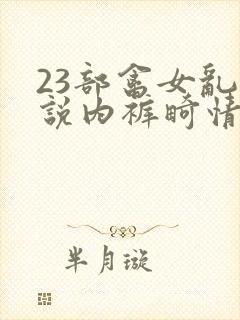 23部畜女亂
說内裤畸情
半月璇